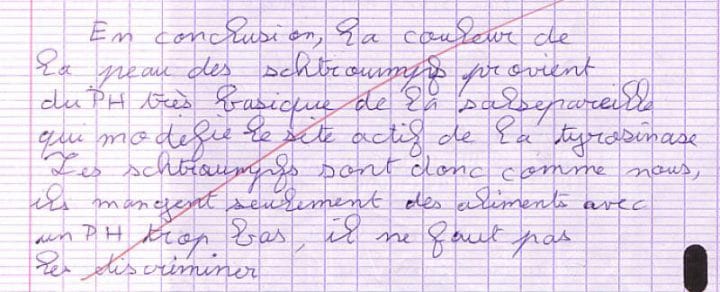 En conclusion, la couleur de
la peau des schtroumpfs provient
du PH très basique de la salsepareille
qui modifie le site actif de la tyrosinase
Les schtroumpfs sont donc comme nous,
ils mangent seulement des aliments avec
un PH trop bas, il ne faut pas
les discriminer